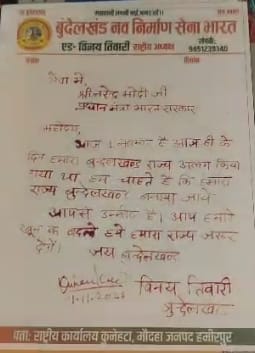 बुंदेलखंड नव निर्माण सेना भारत
एड॰ विनय तिवारी राष्ट्रीय अध्यक्ष
संपर्क:
9451228140
सेवा में,
श्री नरेंद्र मोदी जी
प्रधान मंत्री भारत सरकार
महोदय,
आज 1 नवम्बर है आज ही के
दिन हमारा बुन्देलखण्ड राज्य अलग किया
गया था हम चाहते है कि हमारा
राज्य बुन्देलखण्ड बनाया जाये
आपसे उम्मीद है। आप हमारे
खून के बदले हमे हमारा राज्य जरूर
देगें।
जय बुन्देलखण्ड
विनय तिवारी
बुन्देलखण्ड
पता: राष्ट्रीय कार्यालय कुनेहटा, मौदहा जनपद हमीरपुर